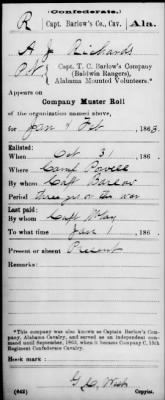 (Confederate.)
R Capt. Barlow's Co., Cav. Ala.
A J Richards
Pvt, Capt. T. C. Barlow's Company
(Baldwin Rangers),
Alabama Mounted Volunteers.*
Appears on
Company Muster Roll
of the organization named above,
for Jan & Feb, 1863.
Enlisted:
When Oct 31, 186
Where Camp Powell
By whom Capt Barlow
Period three yrs or the war
Last paid:
By whom Capt
To what time Jan 1, 186
Present or absent Present
Remarks:
*This company was also known as Captain Barlow's Company, Alabama Cavalry, and served as an independent command until September, 1863, when it became Company C, 15th Regiment Confederate Cavalry.
Book mark:
(642) Copyist.